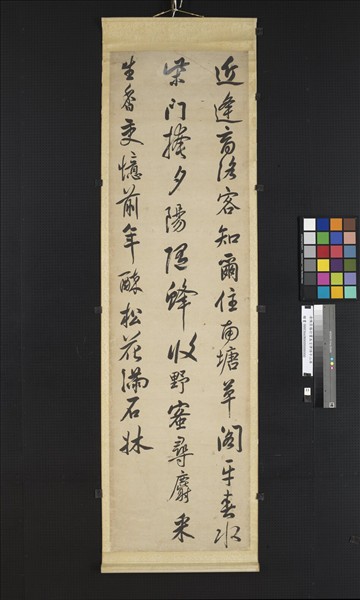 近逢商洛客知爾住南塘草閣平春水
柴門掩夕陽隨蜂收野蜜尋麝采
生香更憶前年醉松花滿石牀